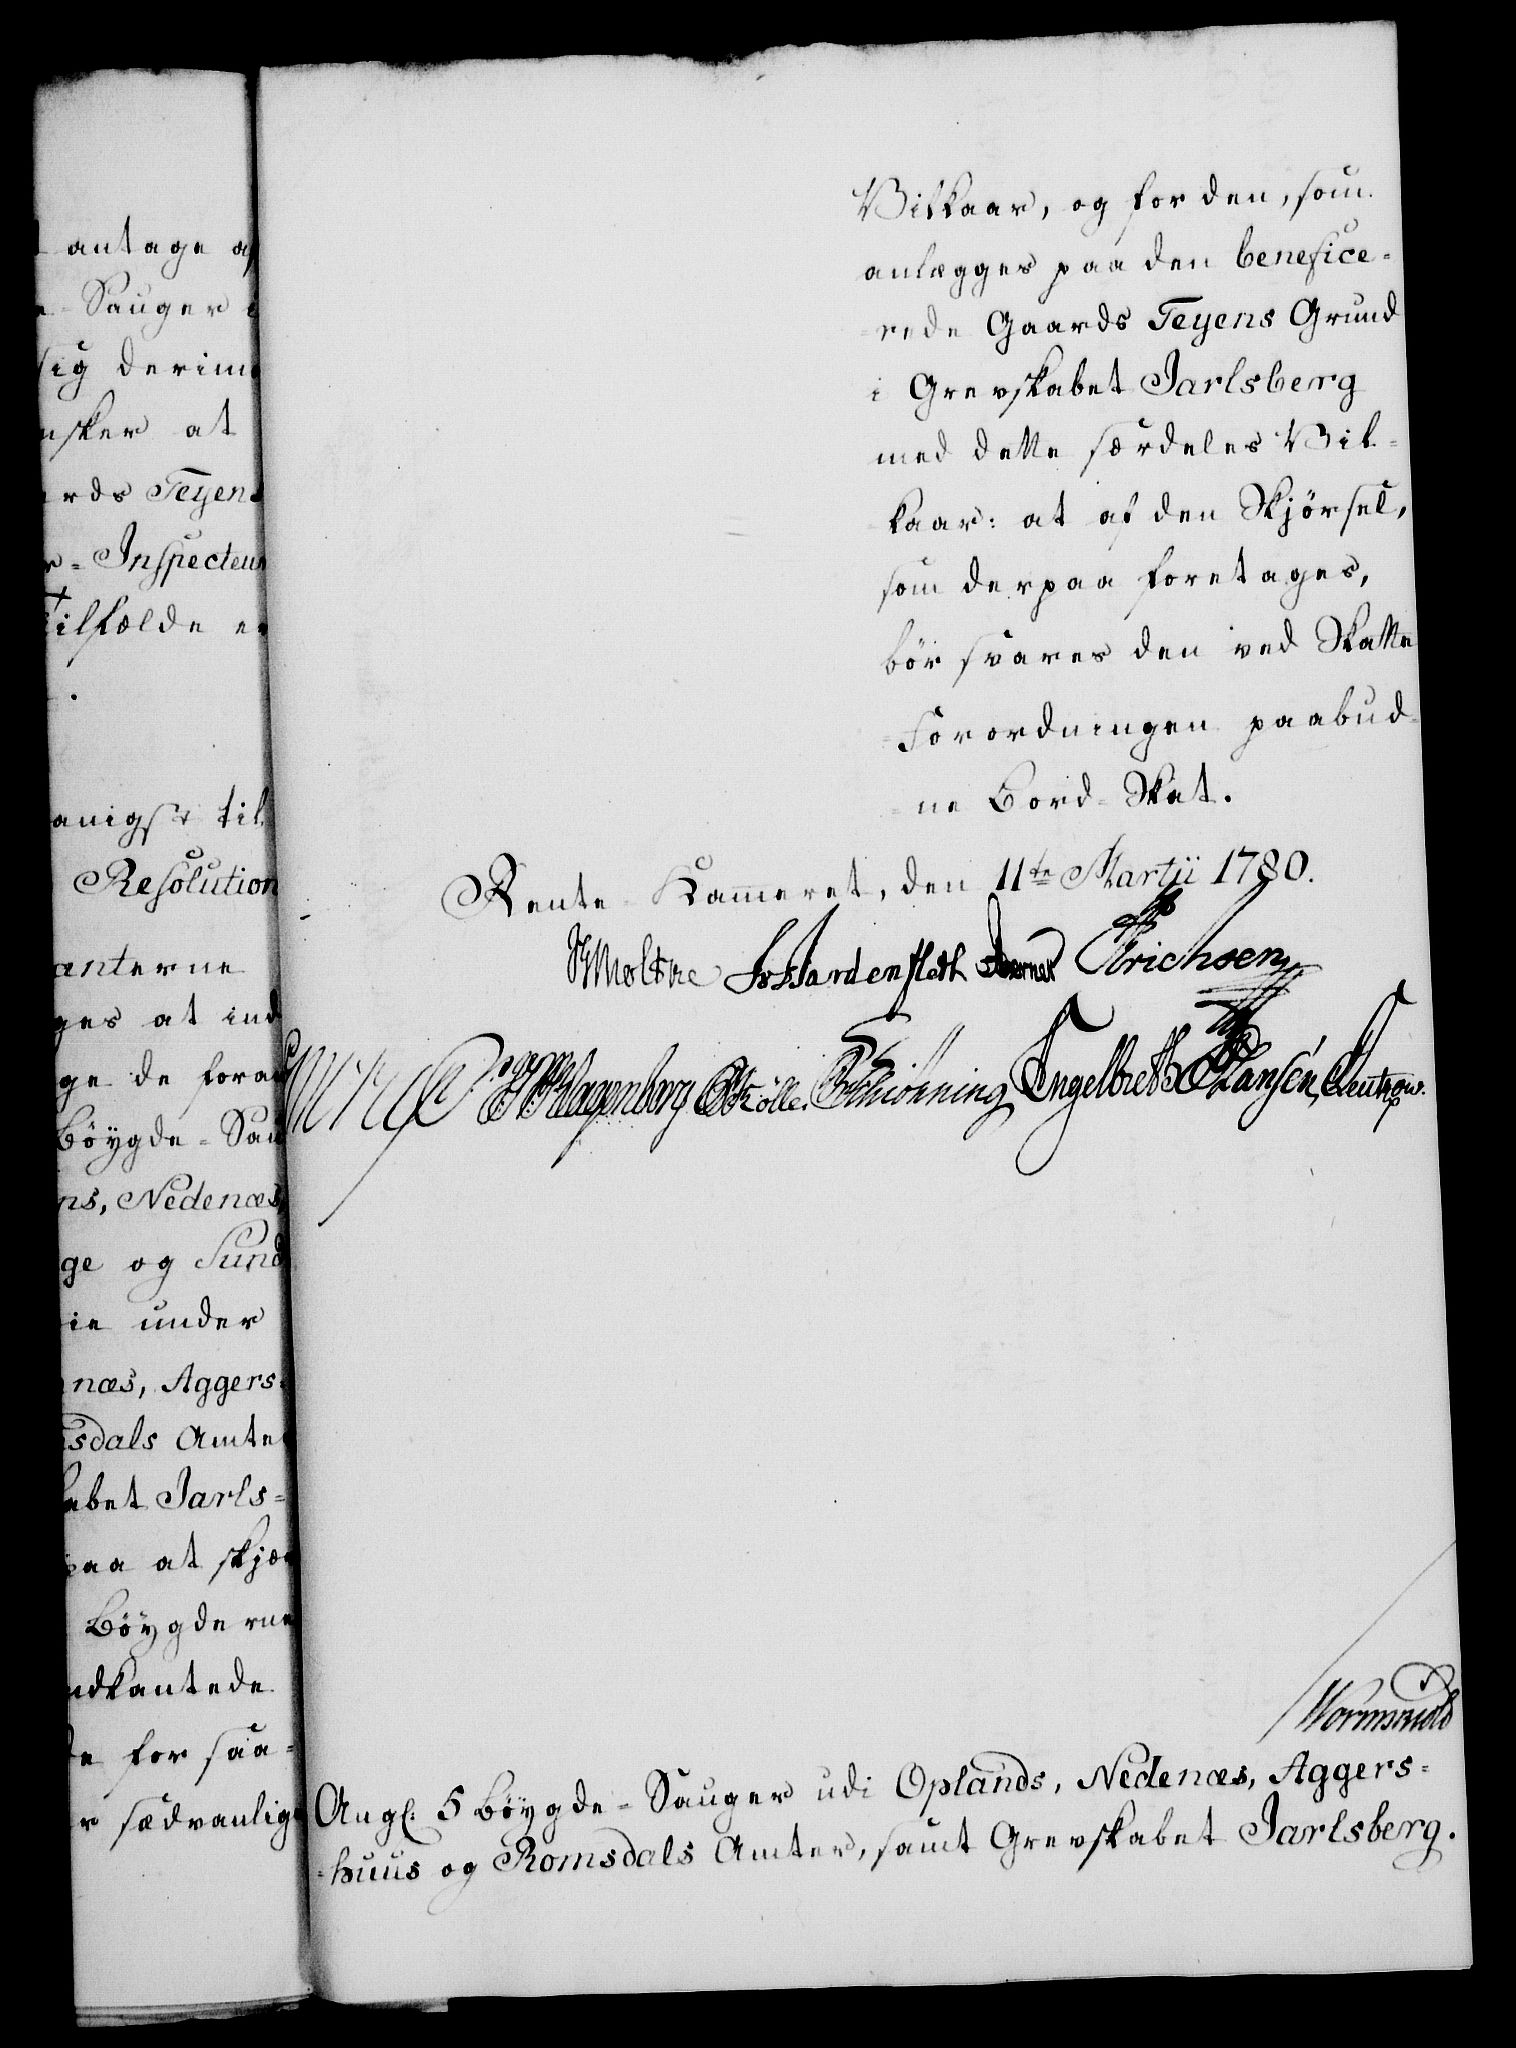 antage af
Sauger
sig derimo
nsker at
rds Teyens
Inspecteur
Tilfælde er
anigst til
Resolution
anterne
ges at ind
ge de foran
Böygde-Sau
ns, Nedenæs,
ge og Sund
ie under
næs, Aggers-
sdals Amte
abet Jarls-
paa at skjæ
Böygderne
ndkantede
for saa-
r sædvanlige
Vilkaar, og for den, som
anlægges paa den benefice-
rede Gaards Teyens Grund
i Grevskabet Jarlsberg
med dette særdeles Vil-
kaar: at af den Skjörsel,
som derpaa foretages,
bör svares den ved Skatte
-Forordningen paabud-
-ne Bord-Skat.
Rente-Kammeret, den 11te Martii 1780.
Moltke Hardenfleth Erichsen
Klagenberg Kölle Schiönning Engelbreth Hansen Leutzow.
Wormskiold
Ang: 5 Böygde-Sauger udi Oplands, Nedenæs, Aggers-
-huus og Romsdals Amter, samt Grevskabet Jarlsberg.